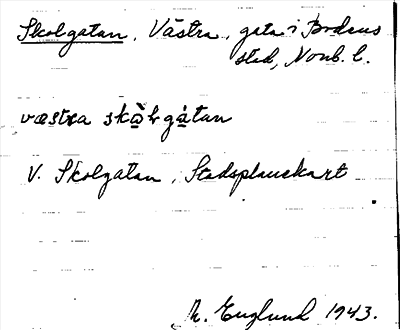 Skolgatan, Västra, gata i Bodens
stad, Norrb. l.
væstra skàlgátan
V. Skolgatan, Stadsplanekart
M. Englund 1943.